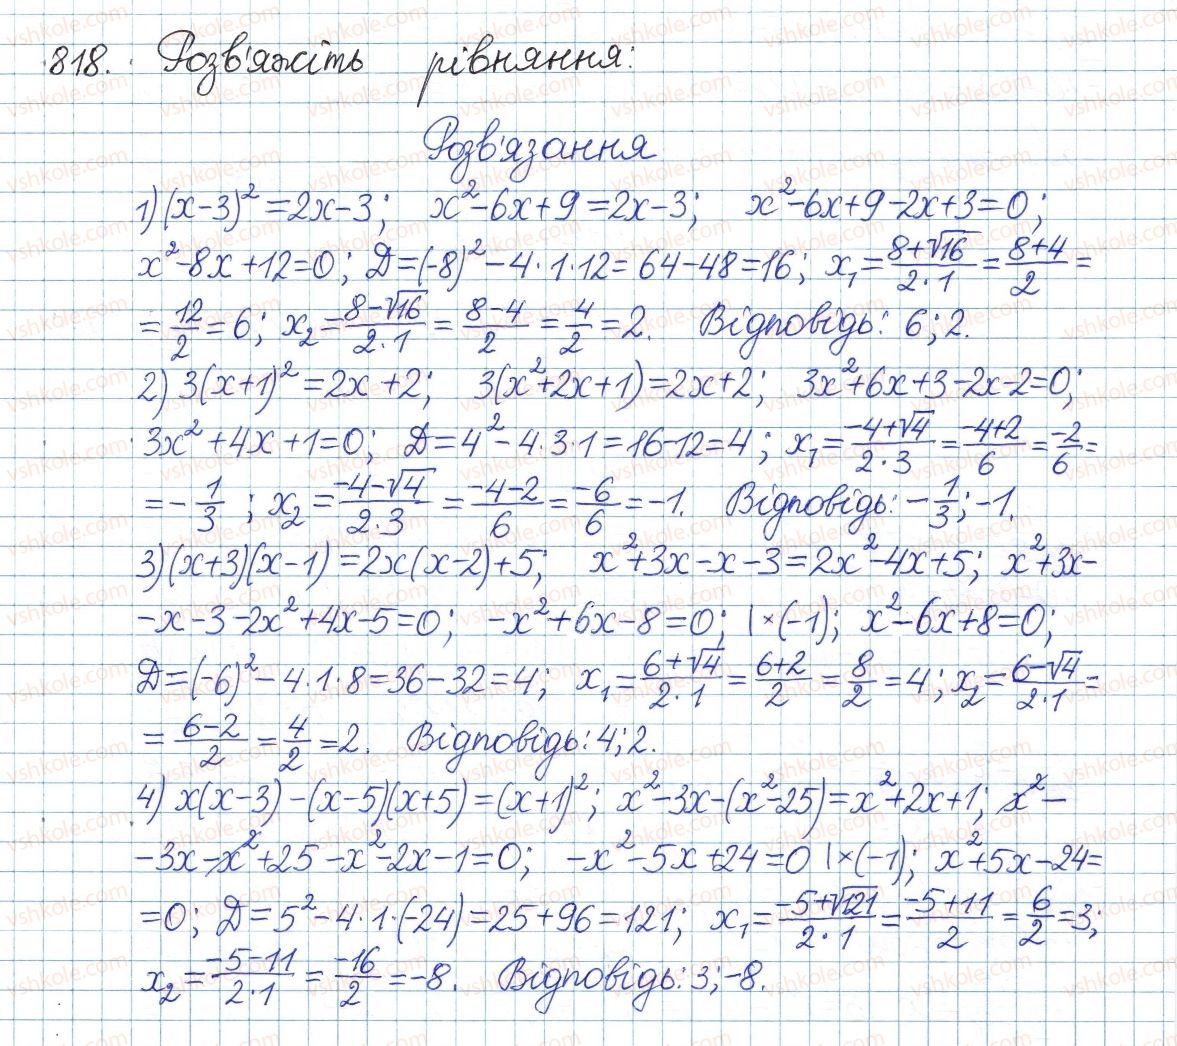 818. Розв'яжіть рівняння:
Розв'язання
1) (x-3)² = 2x-3; x²-6x+9 = 2x-3; x²-6x+9-2x+3=0;
x²-8x+12=0; Д=(-8)²-4·1·12=64-48=16; x₁=(8+√16)/(2·1)=(8+4)/2=
=12/2=6; x₂=(8-√16)/(2·1)=(8-4)/2=4/2=2. Відповідь: 6; 2.
2) 3(x+1)²=2x+2; 3(x²+2x+1)=2x+2; 3x²+6x+3-2x-2=0;
3x²+4x+1=0; Д=4²-4·3·1=16-12=4; x₁=(-4+√4)/(2·3)=(-4+2)/6=-2/6=
=-1/3; x₂=(-4-√4)/(2·3)=(-4-2)/6=-6/6=-1. Відповідь: -1/3; -1.
3) (x+3)(x-1)=2x(x-2)+5; x²+3x-x-3=2x²-4x+5; x²+3x-
-x-3-2x²+4x-5=0; -x²+6x-8=0; |×(-1); x²-6x+8=0;
Д=(-6)²-4·1·8=36-32=4; x₁=(6+√4)/(2·1)=(6+2)/2=8/2=4; x₂=(6-√4)/(2·1)=
=(6-2)/2=4/2=2. Відповідь: 4; 2.
4) x(x-3)-(x-5)(x+5)=(x+1)²; x²-3x-(x²-25)=x²+2x+1; x²-
-3x-x²+25-x²-2x-1=0; -x²-5x+24=0 |×(-1); x²+5x-24=
=0; Д=5²-4·1·(-24)=25+96=121; x₁=(-5+√121)/(2·1)=(-5+11)/2=6/2=3;
x₂=(-5-11)/(2·1)=-16/2=-8. Відповідь: 3; -8.